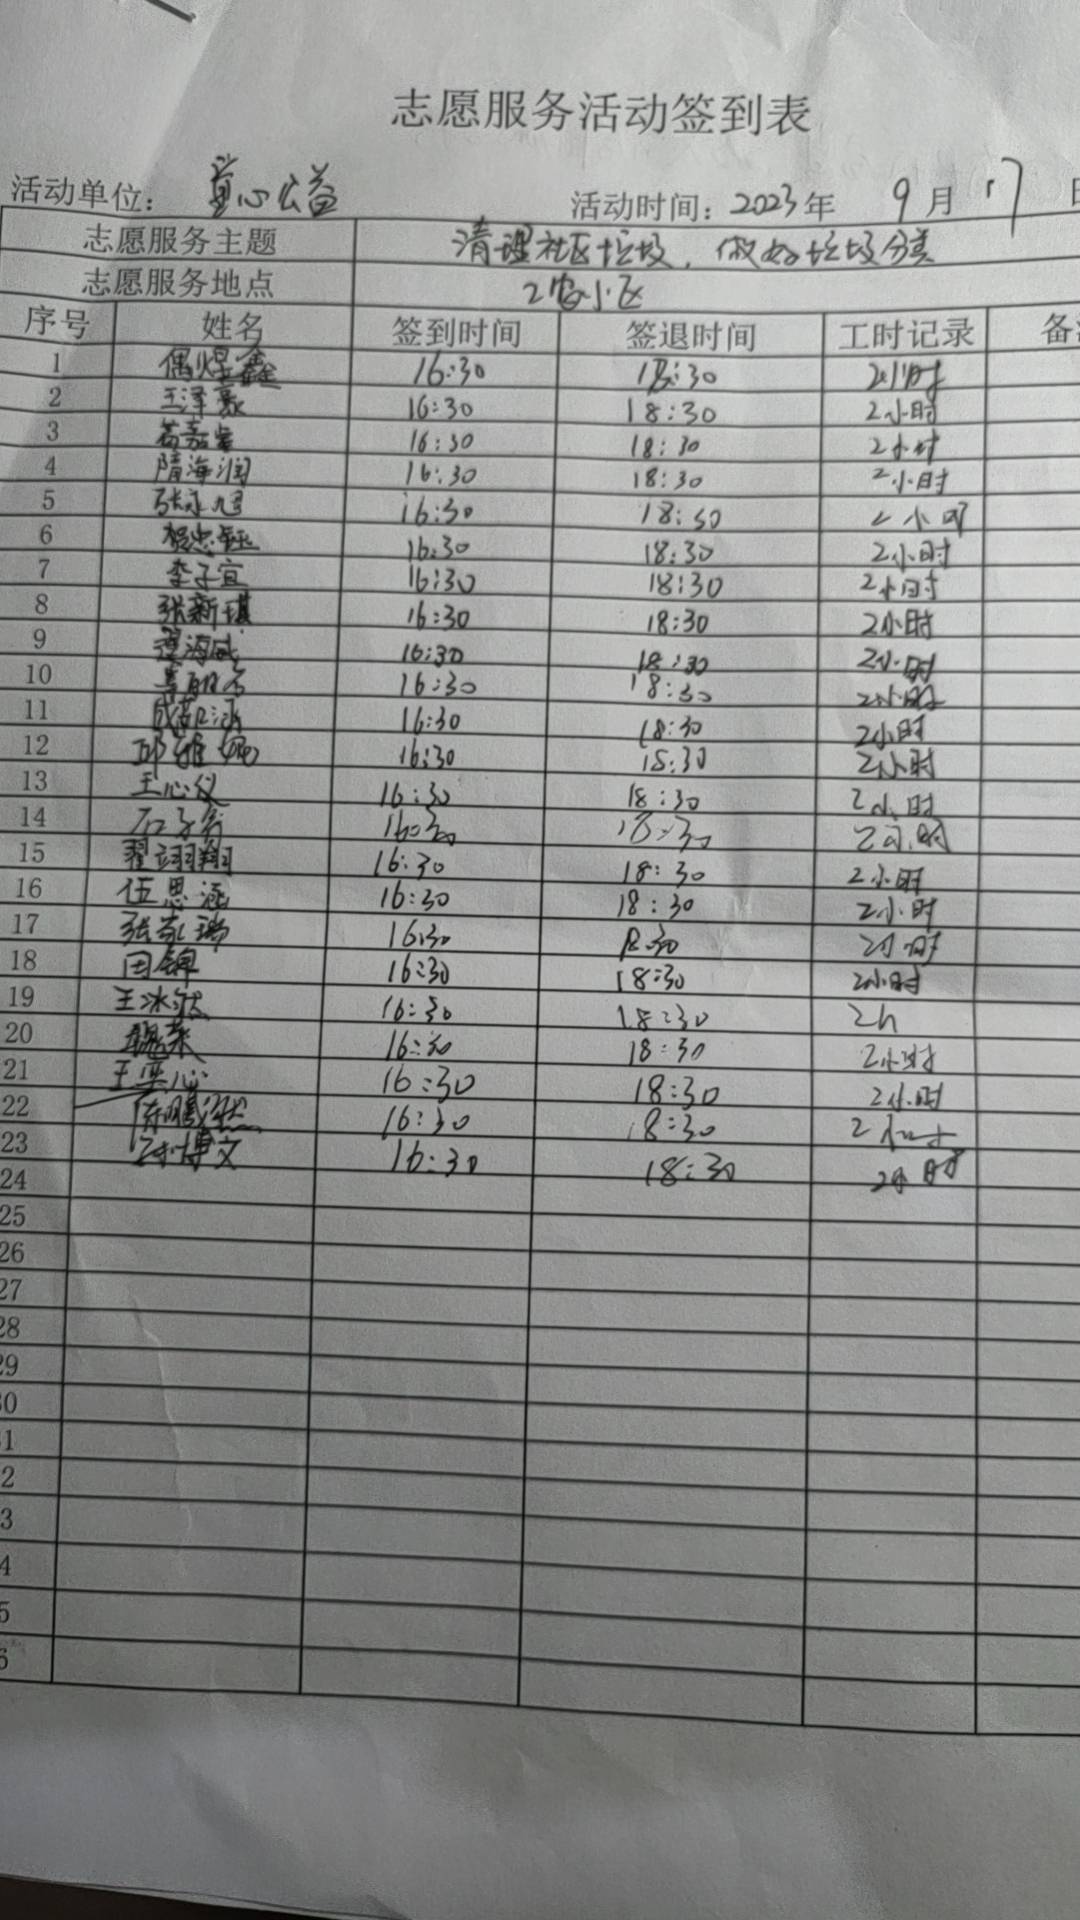 志愿服务活动签到表
活动单位: 童心公益 活动时间: 2023年 9月 17日
志愿服务主题 清理社区垃圾,做好垃圾分类
志愿服务地点 2宿小区
序号 姓名 签到时间 签退时间 工时记录 备
1 偶煜鑫 16:30 18:30 2小时
2 王泽豪 16:30 18:30 2小时
3 葛嘉睿 16:30 18:30 2小时
4 隋海润 16:30 18:30 2小时
5 张永旭 16:30 18:30 2小时
6 程忠钰 16:30 18:30 2小时
7 李子宜 16:30 18:30 2小时
8 张新琪 16:30 18:30 2小时
9 16:30 18:30 2小时
10 16:30 18:30 2小时
11 16:30 18:30 2小时
12 邱雅妮 16:30 18:30 2小时
13 王心仪 16:30 18:30 2小时
14 石子 16:30 18:30 2小时
15 翟翊翔 16:30 18:30 2小时
16 伍思涵 16:30 18:30 2小时
17 张家瑞 16:30 18:30 2小时
18 田锦 16:30 18:30 2小时
19 王冰 16:30 18:30 2h
20 魏荣 16:30 18:30 2小时
21 王奕心 16:30 18:30 2小时
22 陈鹏 16:30 18:30 2小时
23 孙博文 16:30 18:30 2小时
24
25
26
27
28
29
30
31
2
3
4
5
6